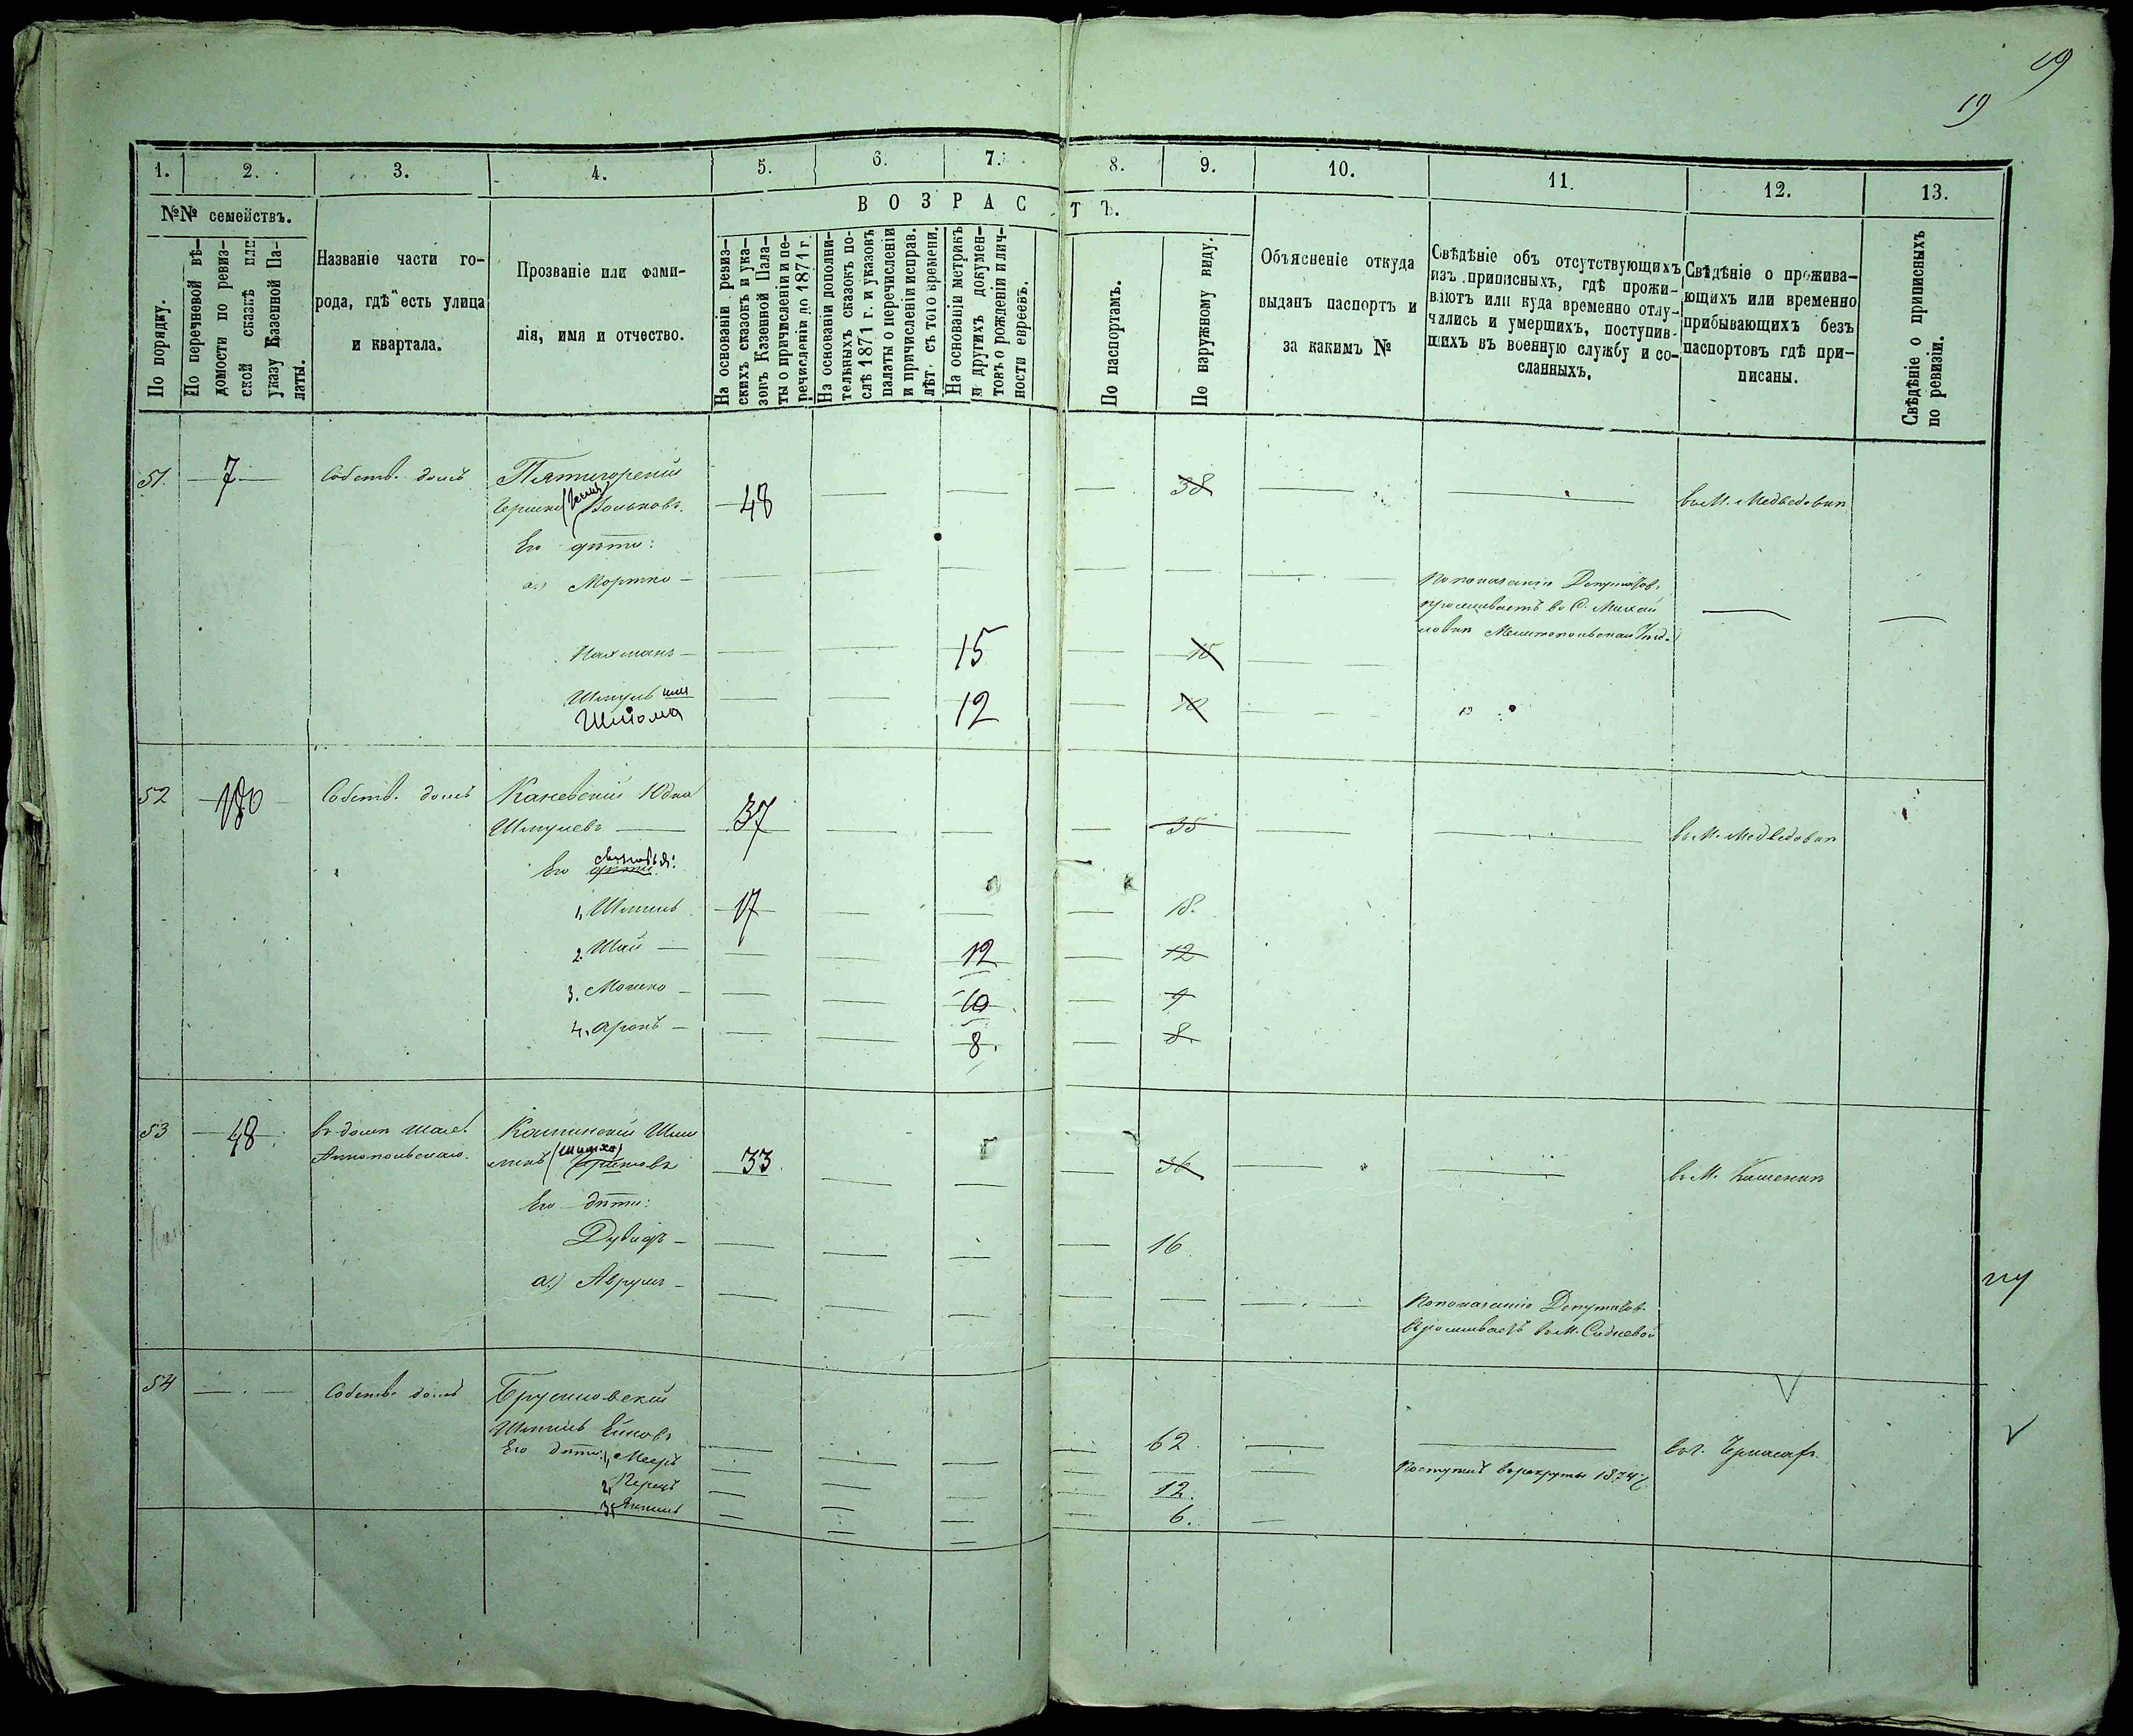 19
19
1. 2. 3. 4. 5. 6. 7. 8. 9. 10. 11. 12. 13.
№№ семействъ.
По порядку.
По перечневой вѣ-
домости по ревиз-
ской сказкѣ или
указу Казенной Па-
латы.
Названіе части го-
рода, гдѣ есть улица
и квартала.
Прозваніе или фами-
лія, имя и отчество.
ВОЗРАСТЪ.
На основаніи ревиз-
скихъ сказокъ и ука-
зовъ Казенной Пала-
ты о причисленіи и пе-
речисленіи до 1871 г.
На основаніи дополни-
тельныхъ сказокъ по-
слѣ 1871 г. и указовъ
палаты о перечисленіи
и причисленіи исправ.
лѣт. съ того времени.
На основаніи метрикъ
и другихъ докумен-
товъ о рожденіи и лич-
ности евреевъ.
По паспортамъ.
По наружному виду.
Объясненіе откуда
выданъ паспортъ и
за какимъ №
Свѣдѣніе объ отсутствующихъ
изъ приписныхъ, гдѣ прожи-
ваютъ или куда временно отлу-
чились и умершихъ, поступив-
шихъ въ военную службу и со-
сланныхъ.
Свѣдѣніе о прожива-
ющихъ или временно
прибывающихъ безъ
паспортовъ гдѣ при-
писаны.
Свѣдѣніе о приписныхъ
по ревизіи.
51. 7 Собств. домъ Пятигорскій
Вольковъ. 48 38 въ М. Медвѣдовкѣ
Его дѣти:
а.) Мортко По показанію Депутатов.
проживаетъ въ С. Михай
ловкѣ Мелитопольскаго Уѣзд.
Нахманъ 15 15
Шмуль или 12 12
Шлёма
52 180 Собств. домъ Каневскій Юдка
Шмулевъ 37 35 въ М. Медвѣдовкѣ
Его дѣти сыновья:
1, Шмиль 17 18.
2. Шай 12 12
3. Мошко 10 9
4. Аронъ 8. 8.
53 48 въ домѣ
33 36 въ М. Каменкѣ
Его дѣти:
Дувидъ 16.
а.) Аврумъ По показанію Депутатов.
проживаетъ въ М.
54 Собств. домъ Брусиловскій
62 въ г. Черкасах.
Его дѣти: 1, Мееръ Поступилъ въ рекруты 1874 г.
2, Перецъ 12.
3, 6.